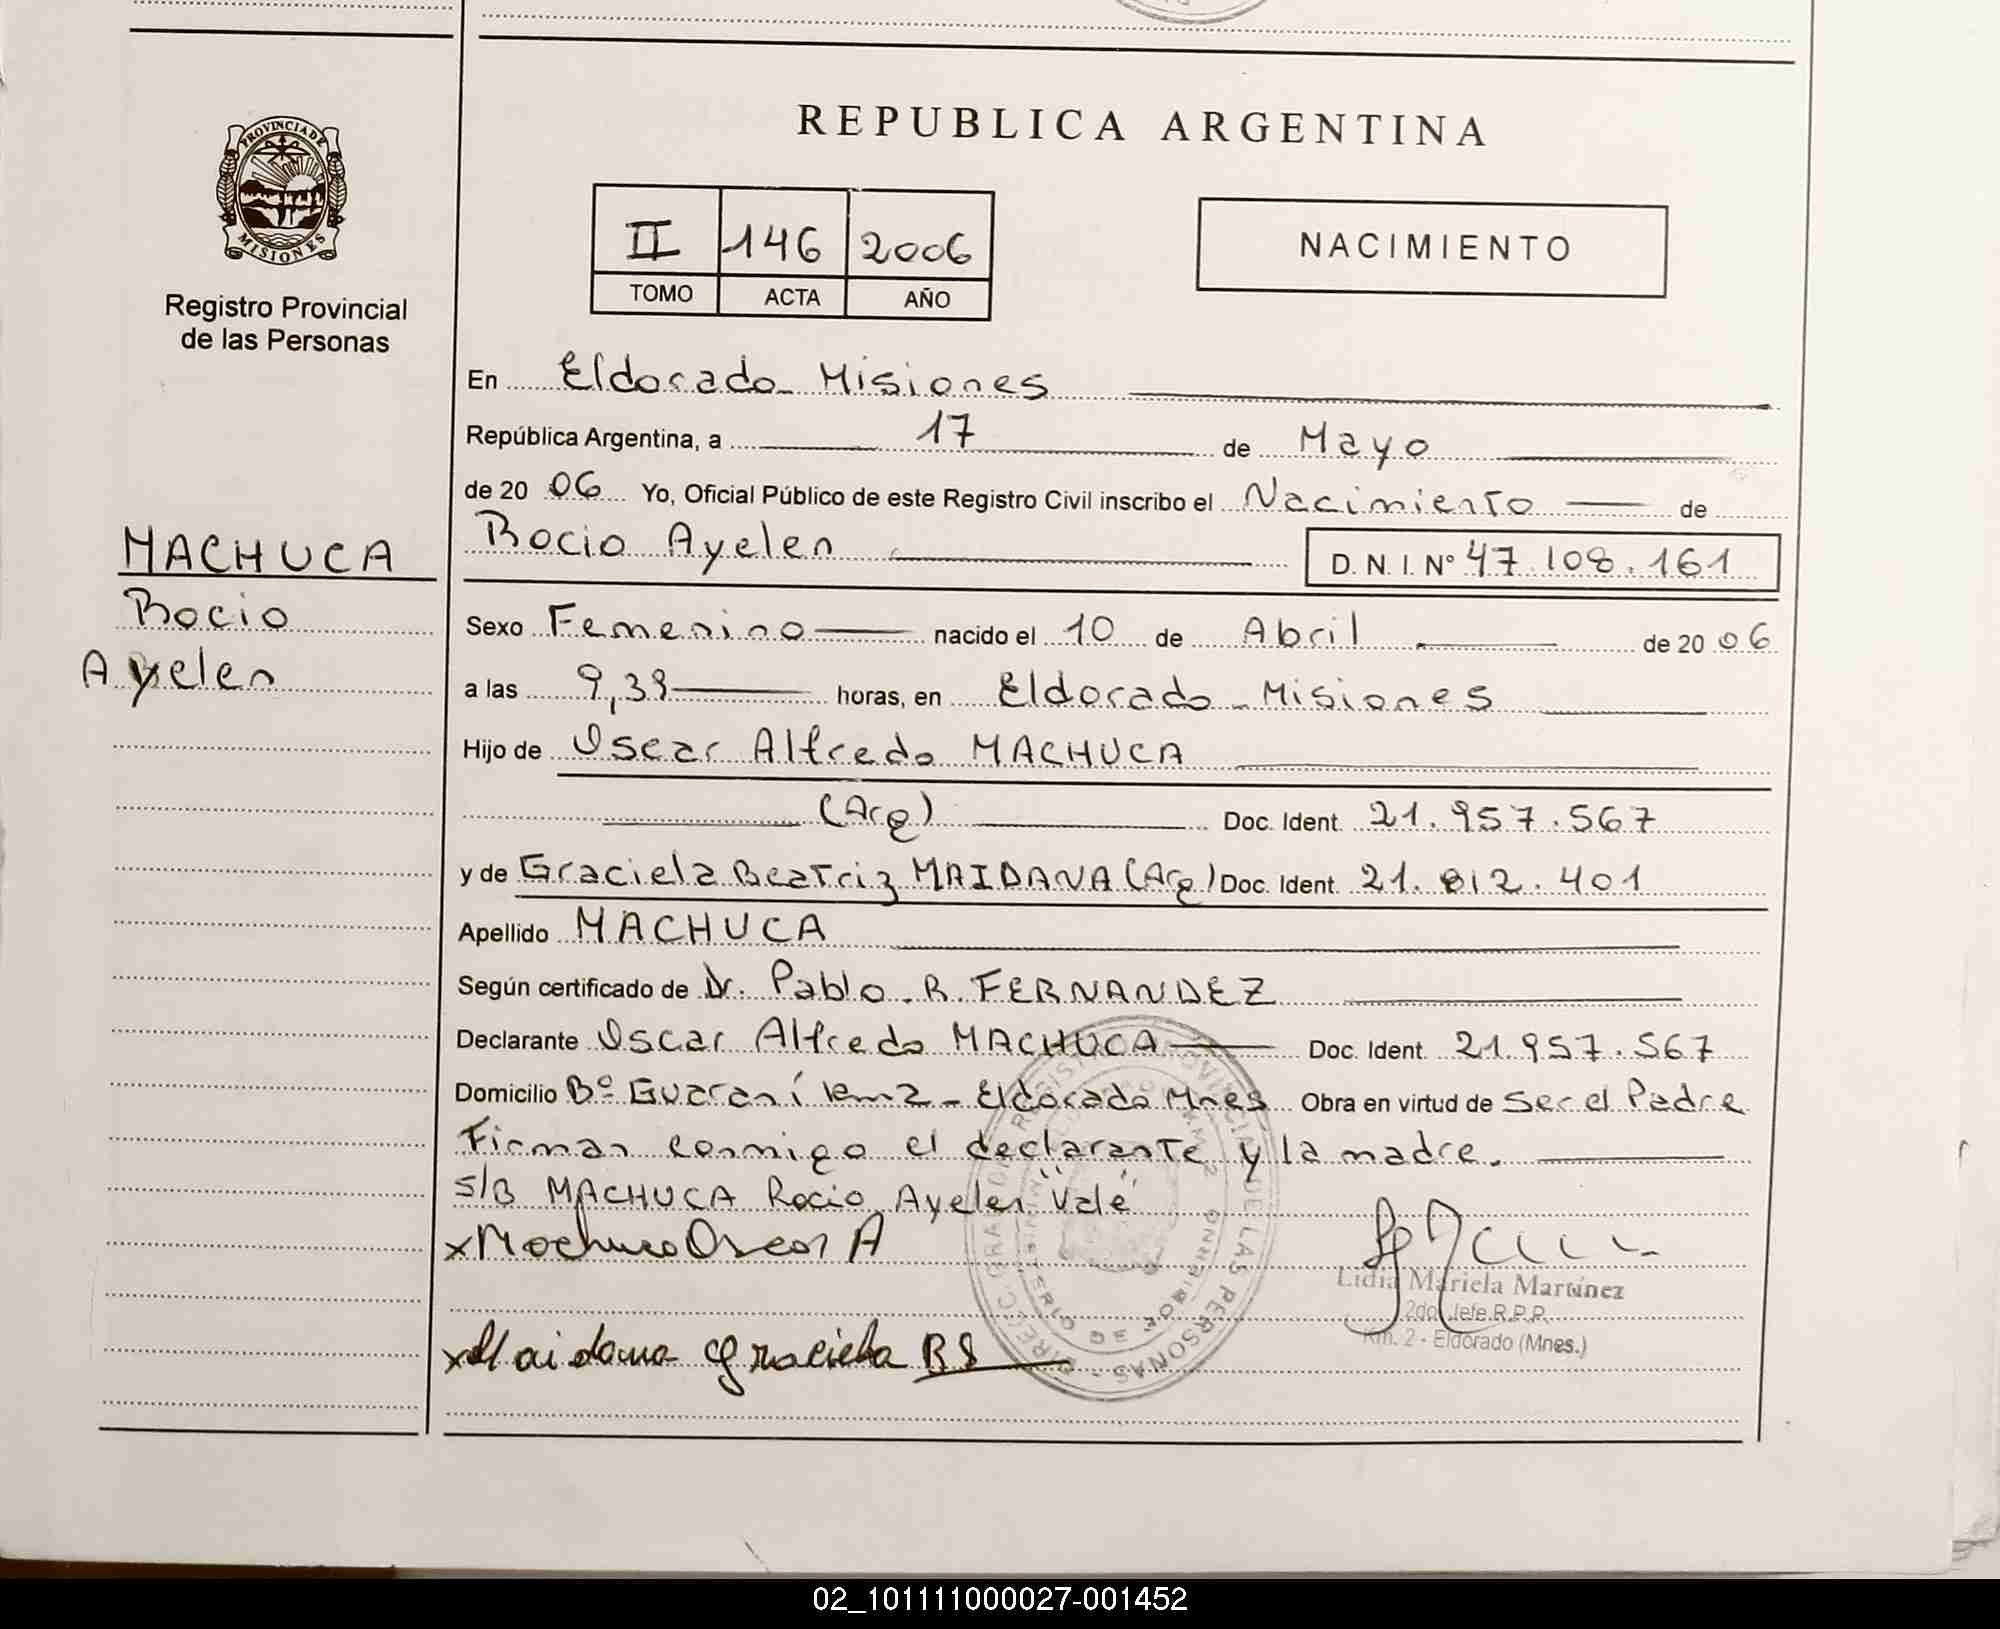 PROVINCIA DE
MISIONES
Registro Provincial
de las Personas
MACHUCA
Rocio
Ayelen
REPUBLICA ARGENTINA
II 146 2006
TOMO ACTA AÑO
NACIMIENTO
En Eldorado - Misiones
República Argentina, a 17 de Mayo
de 20 06 Yo, Oficial Público de este Registro Civil inscribo el Nacimiento de
Rocio Ayelen D. N. I. Nº 47.108.161
Sexo Femenino nacido el 10 de Abril de 20 06
a las 9,39 horas, en Eldorado - Misiones
Hijo de Oscar Alfredo MACHUCA
(Arg) Doc. Ident. 21.957.567
y de Graciela Beatriz MAIDANA (Arg) Doc. Ident. 21.812.401
Apellido MACHUCA
Según certificado de Dr. Pablo. R. FERNANDEZ
Declarante Oscar Alfredo MACHUCA Doc. Ident. 21.957.567
Domicilio Bº Guaraní km 2 - Eldorado Mnes Obra en virtud de Ser el Padre
Firman conmigo el declarante y la madre.
S/B MACHUCA Rocio Ayelen "Vale"
x Machuca Oscar A
Lidia Mariela Martínez
2do. Jefe R.P.P.
Km. 2 - Eldorado (Mnes.)
x Maidana Graciela B
02_101111000027-001452